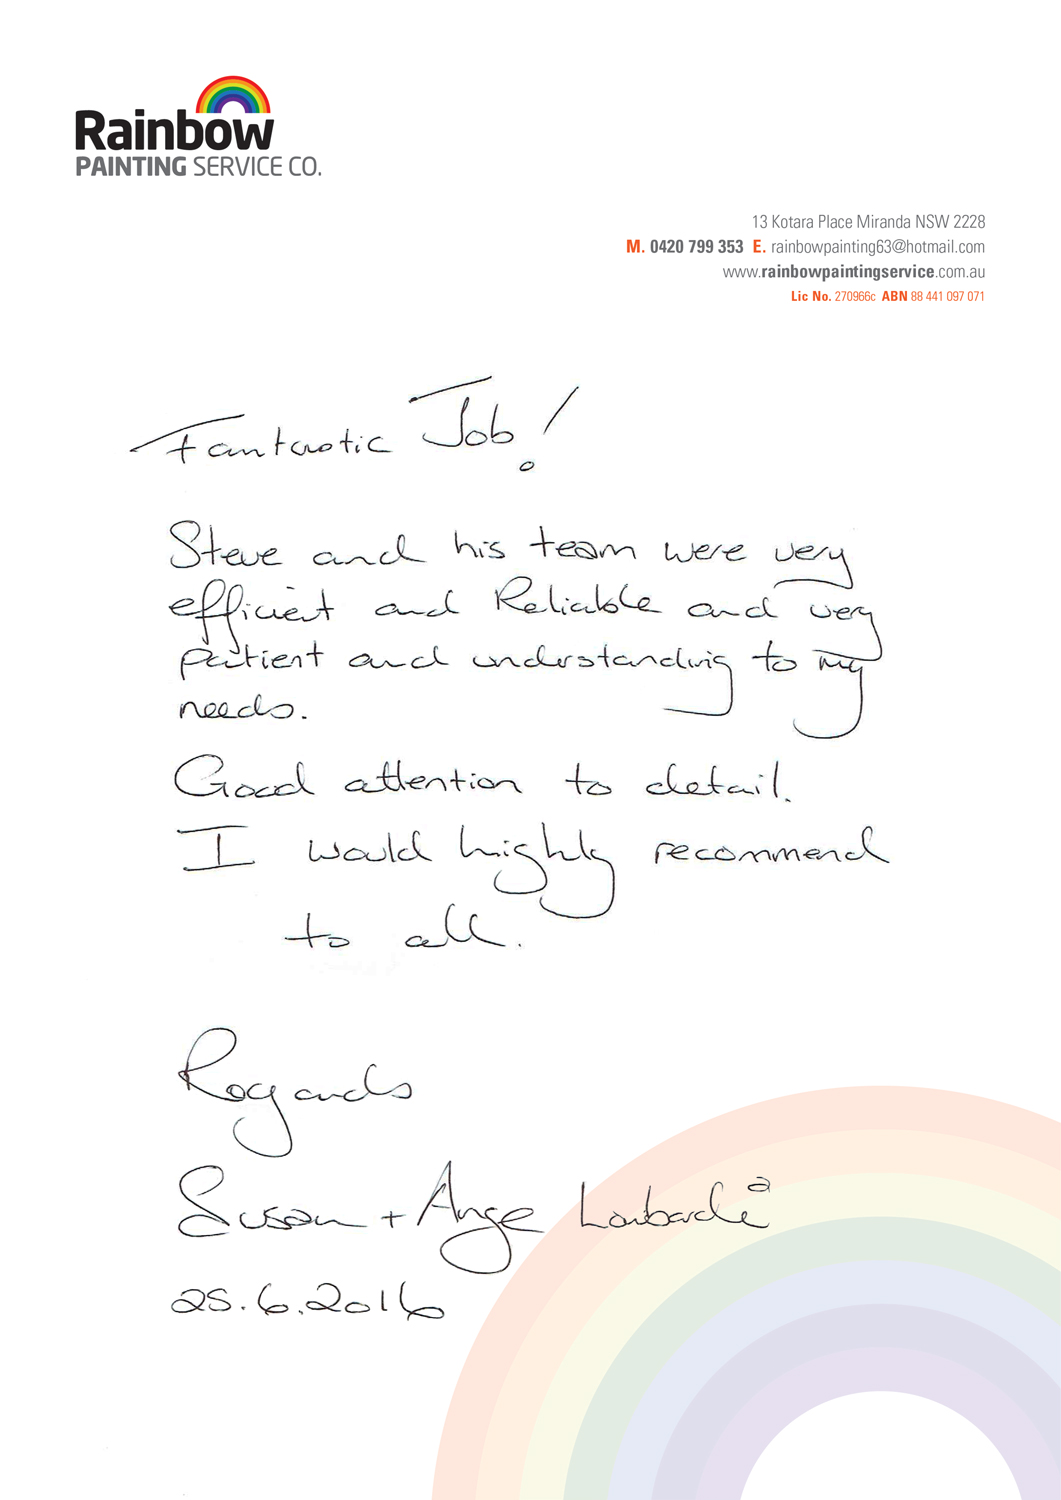 Rainbow
PAINTING SERVICE CO.
13 Kotara Place Miranda NSW 2228
M. 0420 799 353 E. rainbowpainting63@hotmail.com
www.rainbowpaintingservice.com.au
Lic No. 270966c ABN 88 441 097 071
Fantastic Job!
Steve and his team were very
efficient and Reliable and very
patient and understanding to my
needs.
Good attention to detail.
I would highly recommend
to all.
Regards
Susan + Ange
25.6.2016